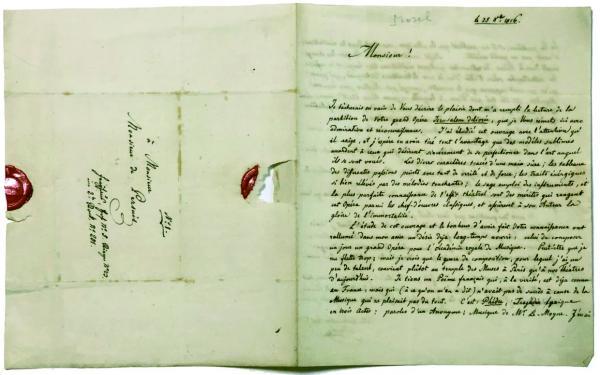 à Monsieur
Monsieur de Persuis
le 25 8bre 1816.
Monsieur!
Je tâcherais en vain de Vous décrire le plaisir dont m'a rempli la lecture de la
partition de Votre grand Opéra Jérusalem délivrée, que je Vous remets ici avec
admiration et reconnaissance. J'ai étudié cet ouvrage avec l'attention qu'
il exige, et j'espère en avoir tiré tout l'avantage que des modèles sublimes
accordent à ceux qui désirent sincèrement de se perfectionner dans l'art auquel
ils se sont voués. Les divers caractères tracés d'une main sûre; les tableaux
des différentes passions peints avec tant de vérité et de force; les traits énergiques
si bien relevés par des mélodies touchantes; le sage emploi des instruments, et
la plus parfaite connaissance de l'effet théâtral sont des mérites qui rangent
cet Opéra parmi les chef-d'oeuvres classiques, et assurent à son Auteur la
gloire de l'immortalité.
L'étude de cet ouvrage et le bonheur d'avoir fait Votre connaissance ont
rallumé dans mon âme un désir déjà long-temps nourri; celui de composer
un jour un grand Opéra pour l'Académie royale de Musique. Peut-être que je
me flatte trop; mais je crois que le genre de composition, pour lequel j'ai un
peu de talent, convient plutôt au temple des Muses à Paris qu'à nos théâtres
d'aujourd'hui. Je tiens un Poème français qui, à la vérité, est déjà connu
en France, mais qui (à ce qu'on m'en a dit) n'avait pas de succès à cause de la
Musique qui ne plaisait pas du tout. C'est: Phèdre; Tragédie lyrique
en trois Actes; paroles d'un Anonyme; Musique de Mr. Le Moyne. J'avais